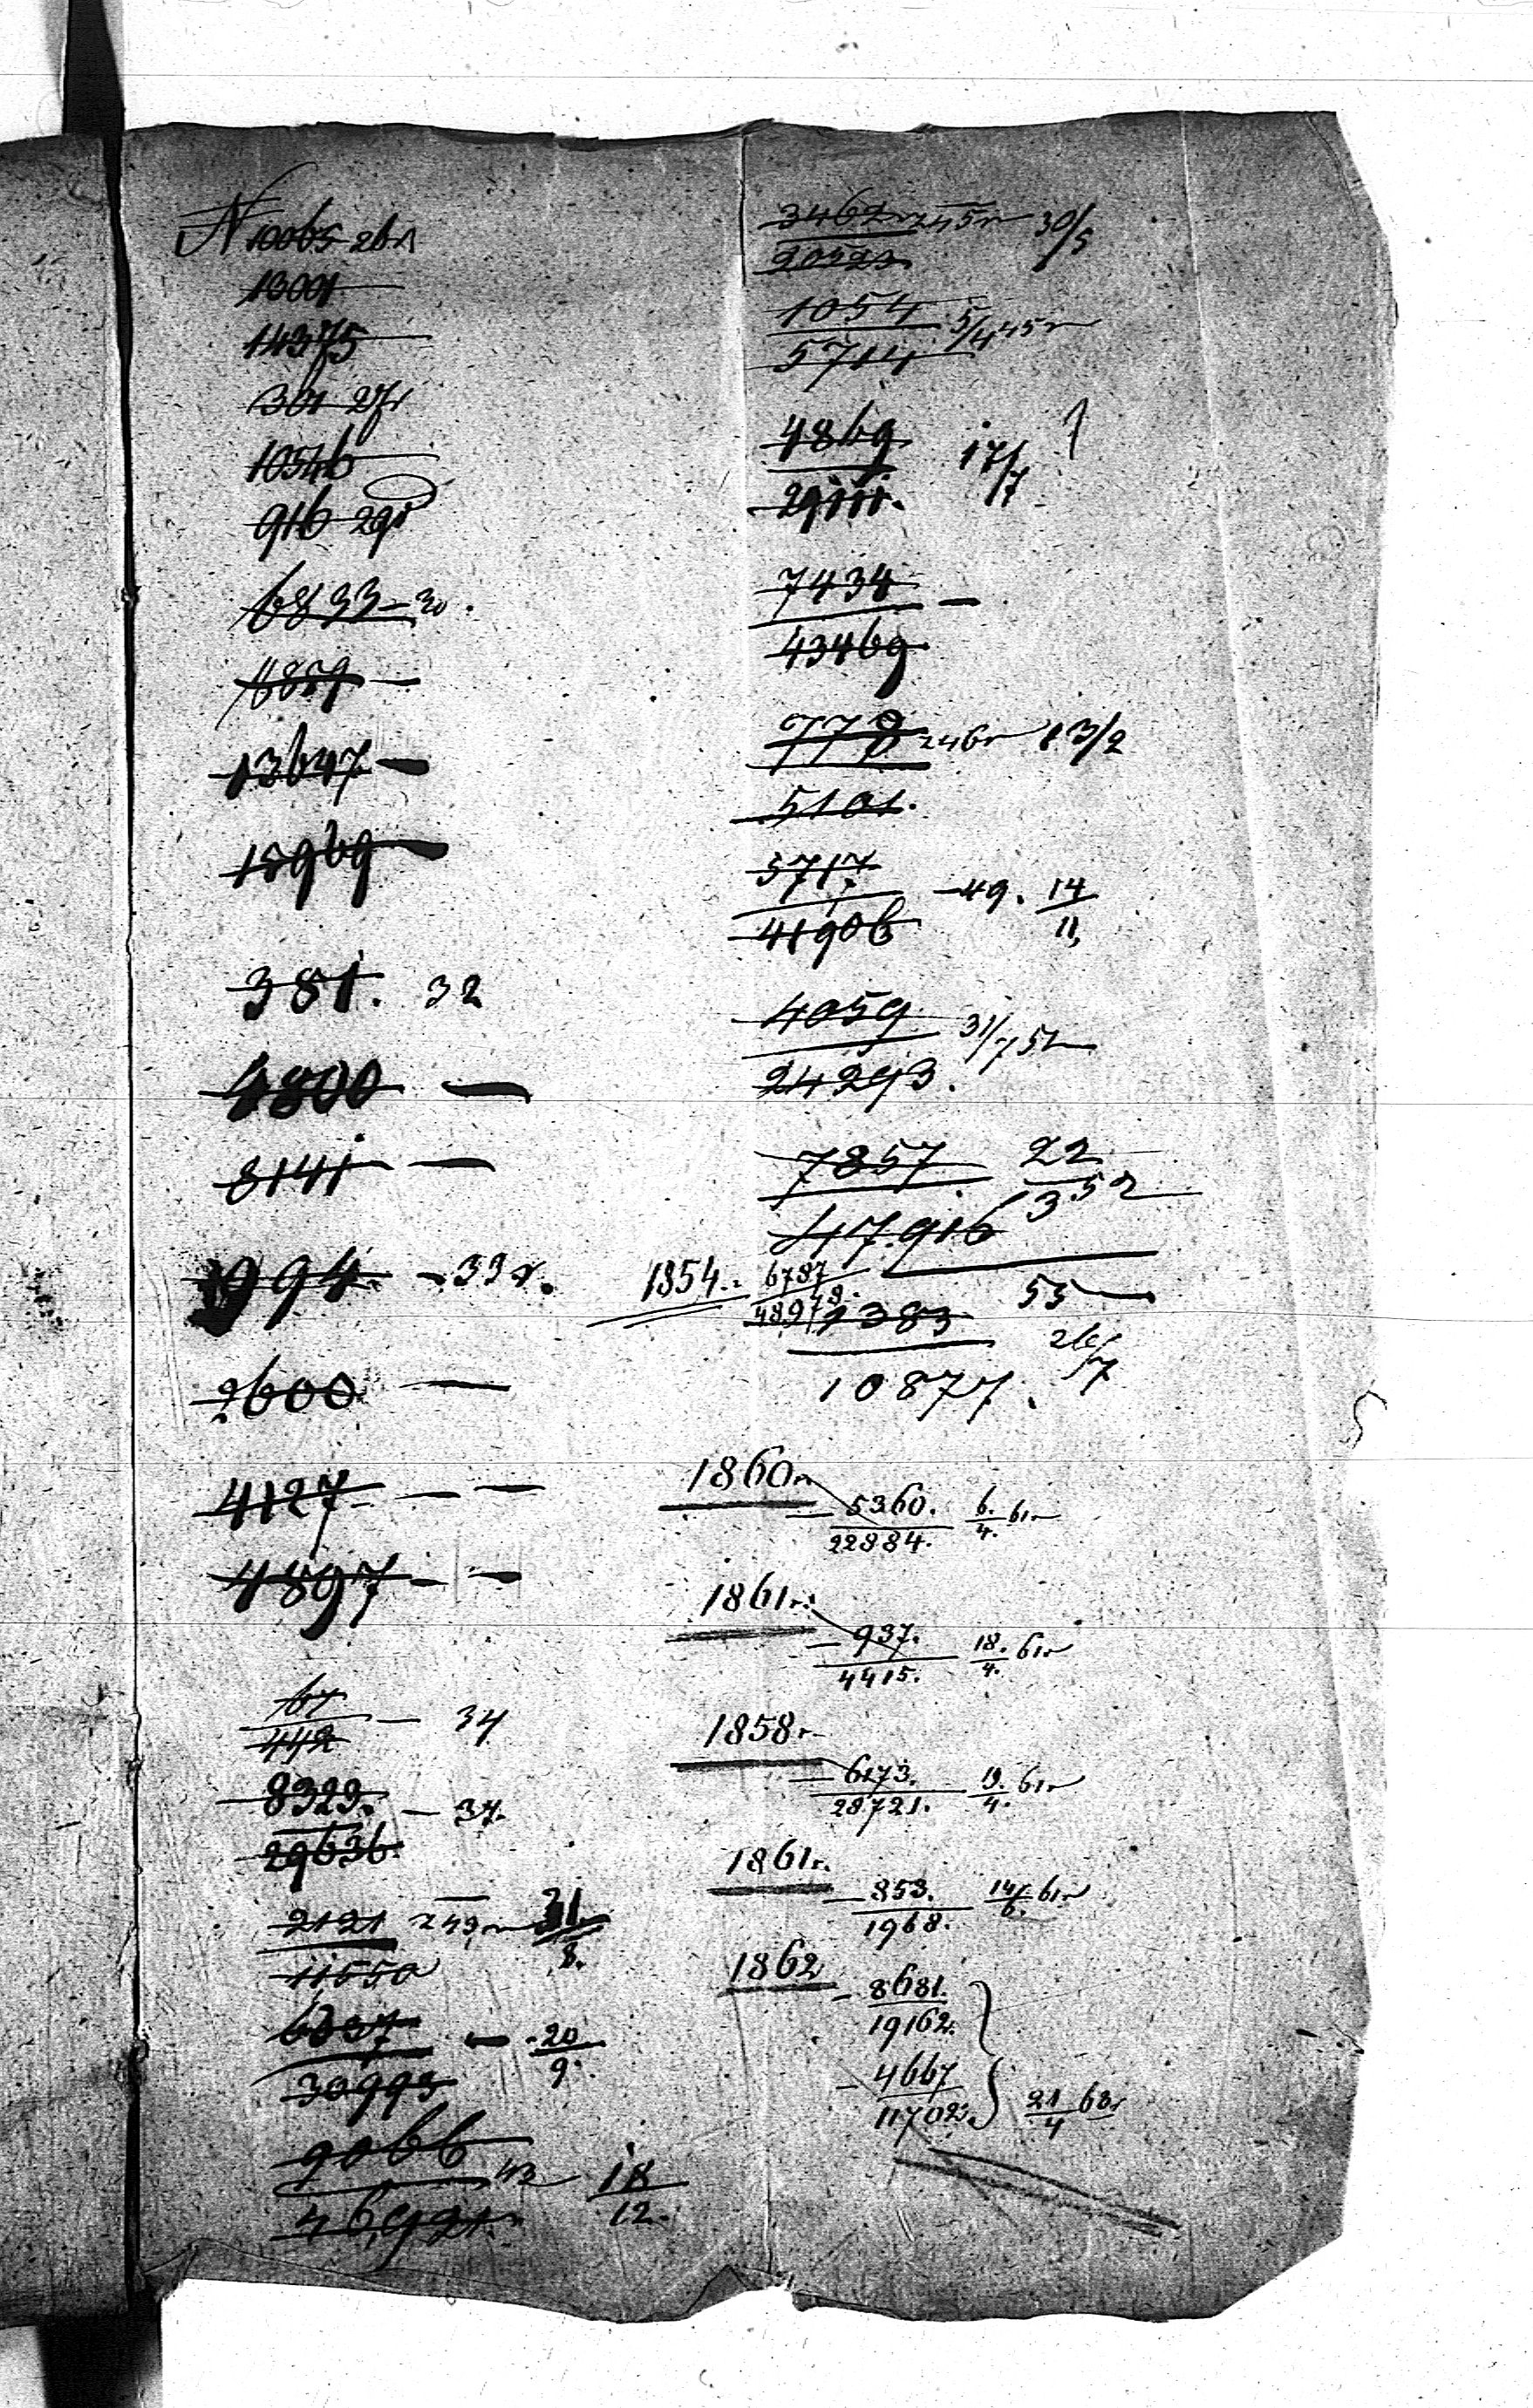 N 10065 26 r
13001
14375
361 27 r
10546
916 29 r
6833 - 30.
6859 -
13647 -
15969 -
381. 32
4800 -
8141 -
994. - 33 r.
2600 -
4127 - -
4897 - -
67
442 - 34
8323. - 37.
29636
2121 z 43 r 31
11550 8.
6037 - 20
30993 9.
9066 43 18
46921. 12.
3462 z 45 r 30/5
20523
1054 5/4 45 r
5714
4869 17/7
29111.
7434 -
43469
778 z 46 r 13/2
5101.
5717. - 49. 14
41906 11.
4059 31/7 51
24293.
7857 22
47.916 3 52
1854. - 6787
48978.
1383 55 -
10877. 26/7
1860 r. - 5360. 6. 61 r
22884. 4.
1861 r. - 937. 18. 61 r
4415. 4.
1858 r - 6173. 19. 61 r
28721. 4.
1861 r. - 853. 14 61 r
1968. 6.
1862 - 8681.
19162.
- 4667 21 63 r
11702. 4